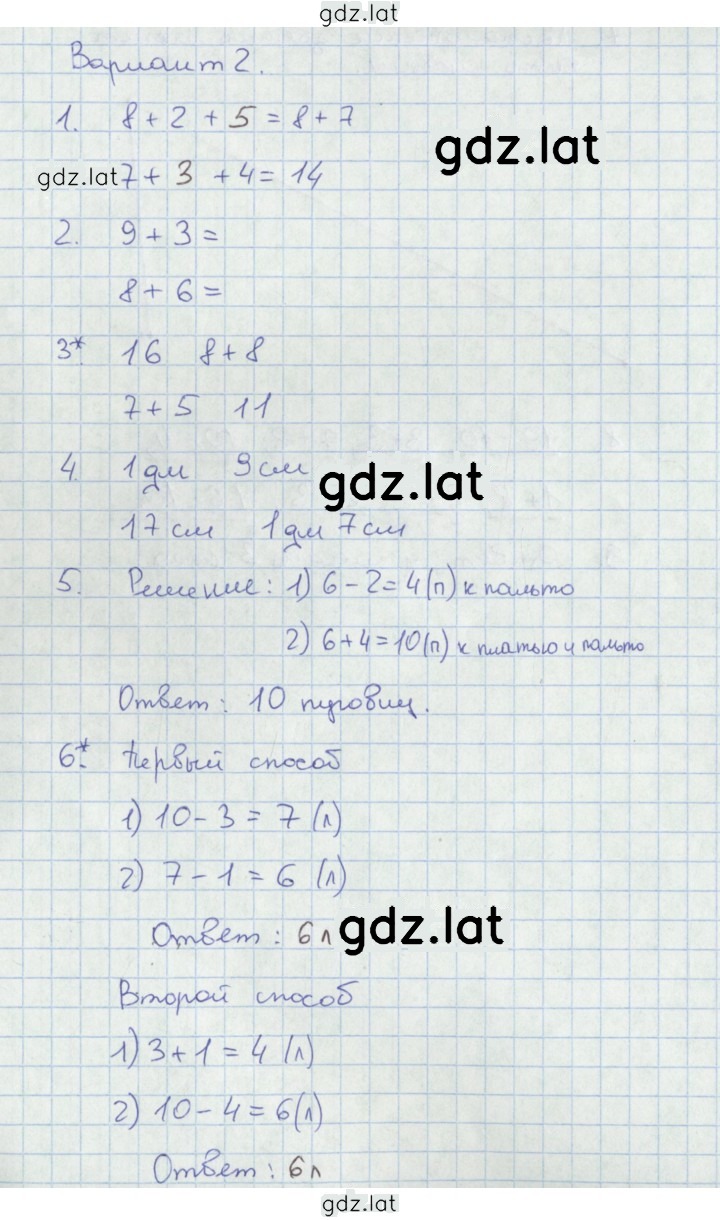 gdz.lat
Вариант 2.
1. 8 + 2 + 5 = 8 + 7
gdz.lat
gdz.lat 7 + 3 + 4 = 14
2. 9 + 3 =
8 + 6 =
3*. 16 8 + 8
7 + 5 11
4. 1 дм 9 см
gdz.lat
17 см 1 дм 7 см
5. Решение: 1) 6 - 2 = 4 (п) к пальто
2) 6 + 4 = 10 (п) к платью и пальто
Ответ: 10 пуговиц.
6*. Первый способ
1) 10 - 3 = 7 (л)
2) 7 - 1 = 6 (л)
Ответ: 6 л
gdz.lat
Второй способ
1) 3 + 1 = 4 (л)
2) 10 - 4 = 6 (л)
Ответ: 6 л
gdz.lat